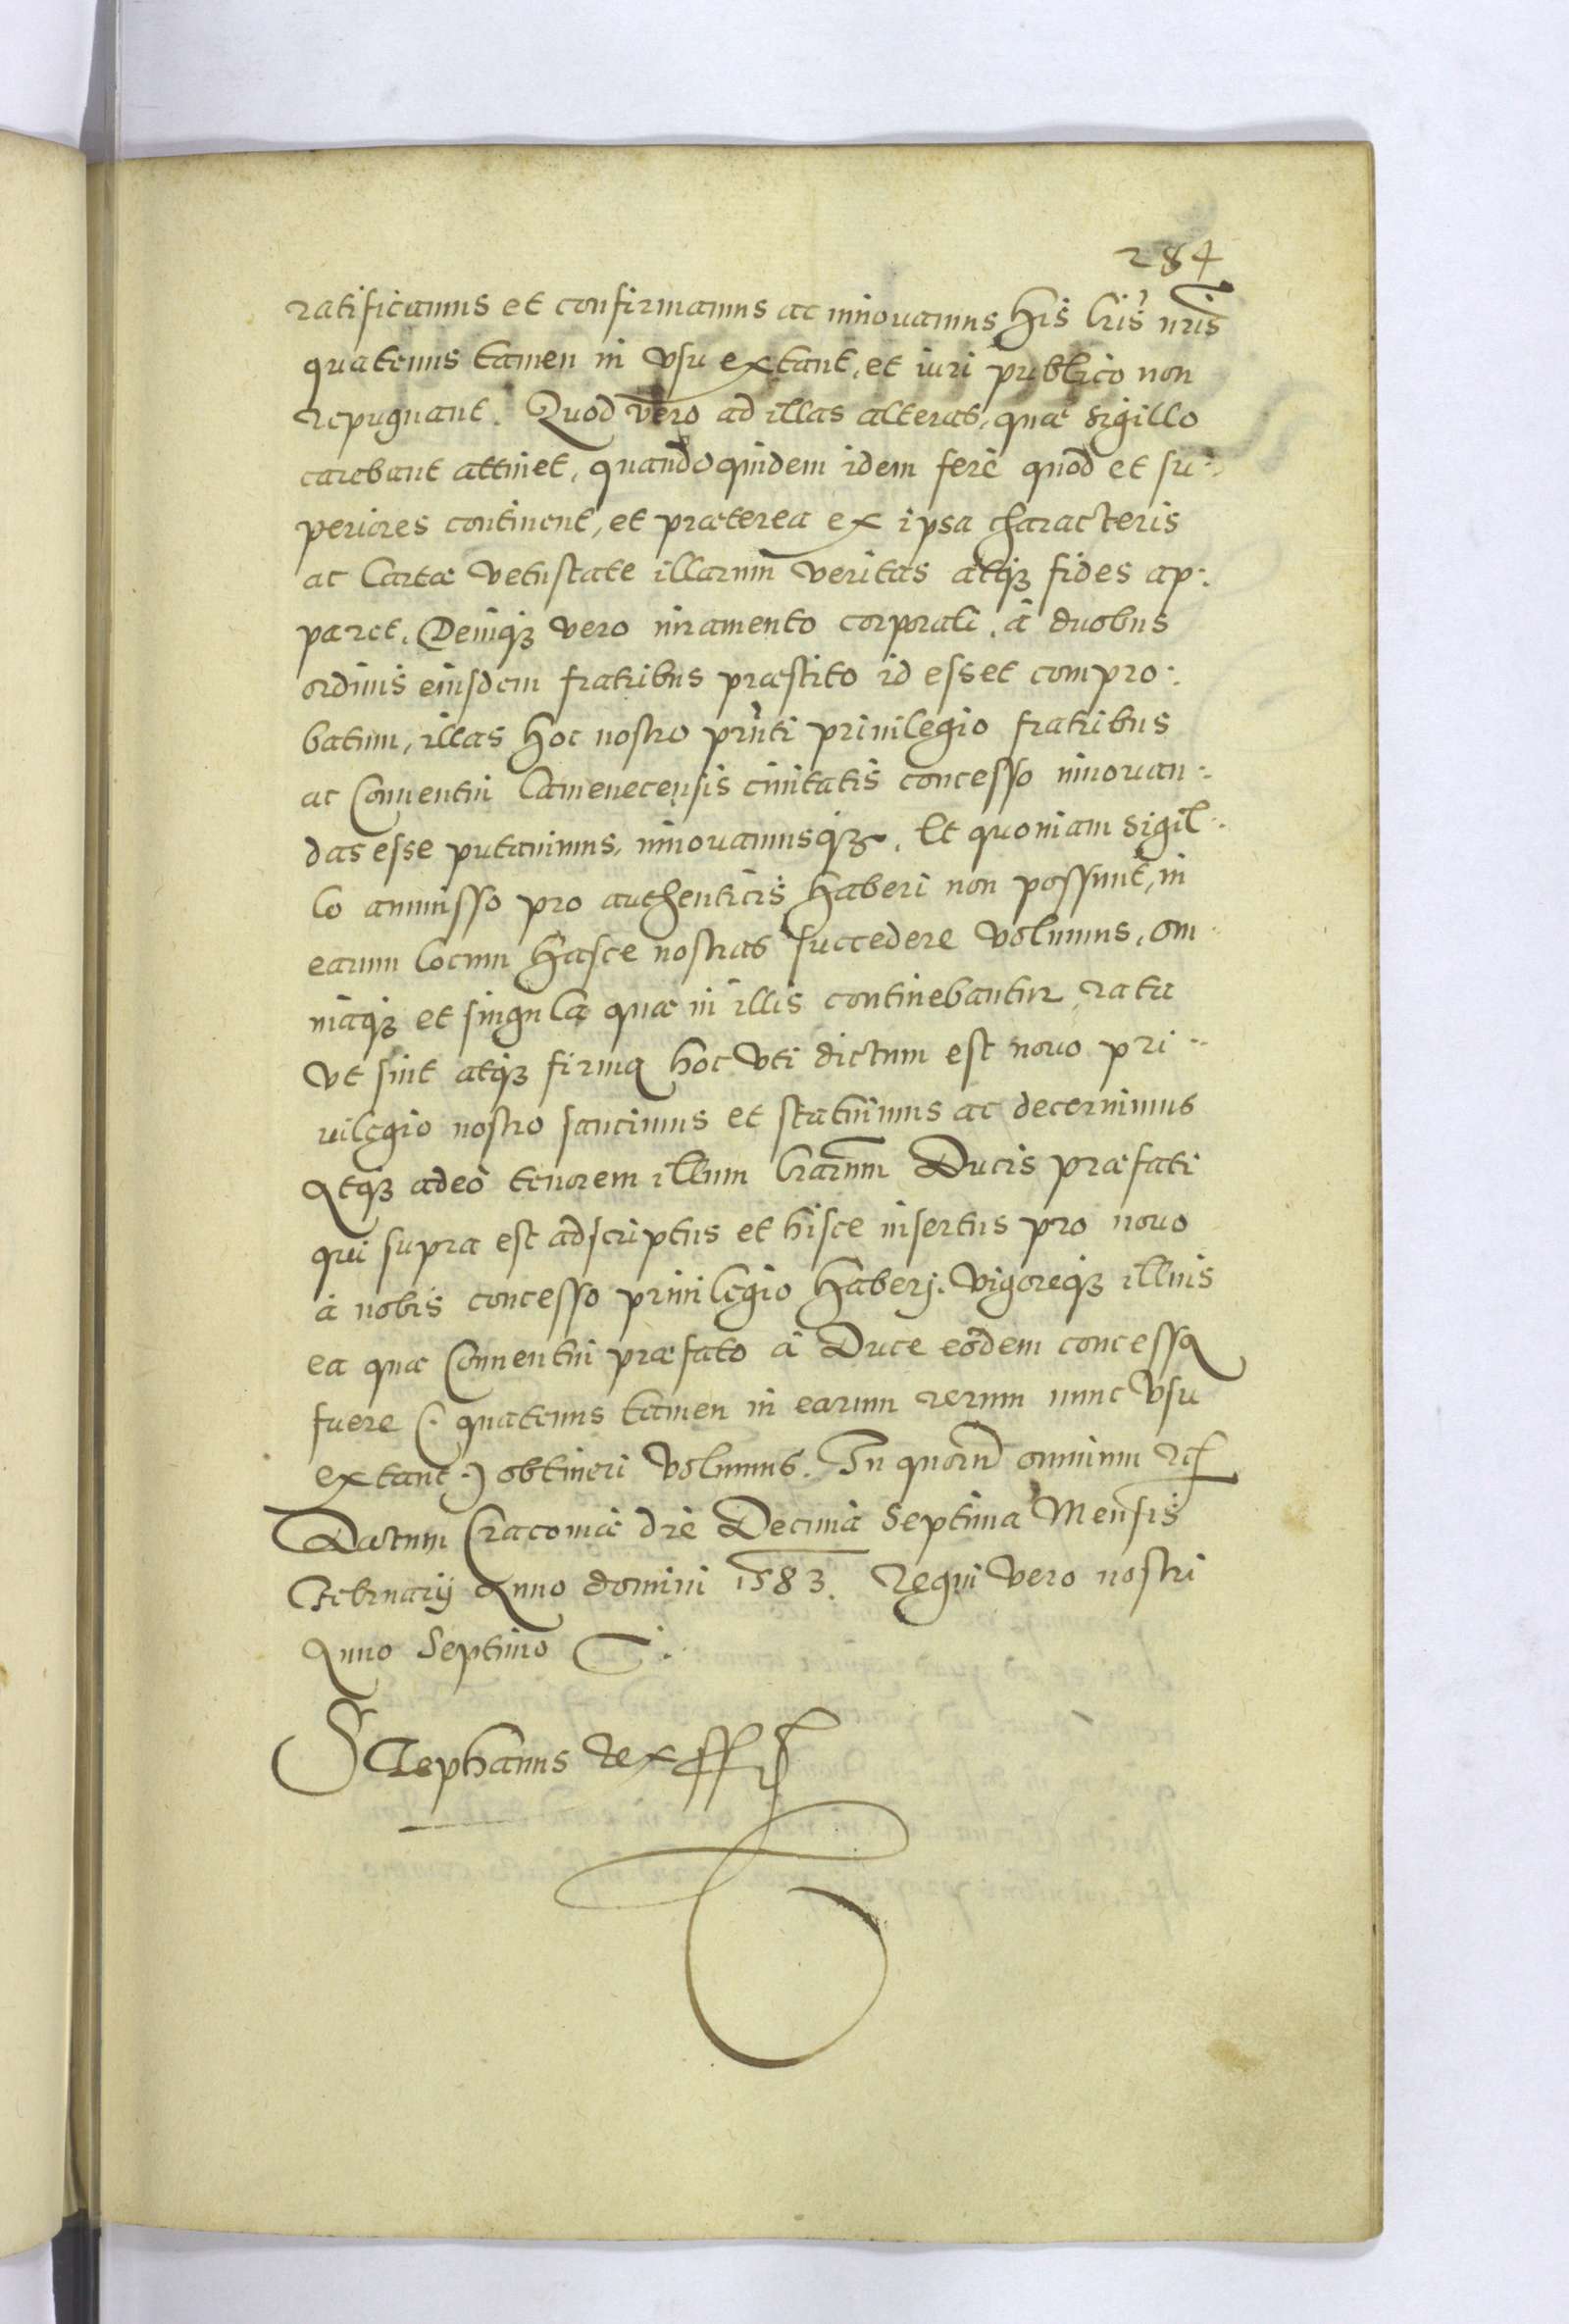 284
ratificamus et confirmamus ac innouamus his lris nris
quatenus tamen in vsu extant, et iuri publico non
repugnant. Quod vero ad illas alteras, quæ sigillo
carebant attinet, quandoquidem idem ferè quod et su-
periores continent, et præterea ex ipsa characteris
ac Cartæ vetustate illarum veritas atq3 fides ap-
paret, Deniq3 vero iuramento corporali, à duobus
ordinis eiusdem fratribus præstito id esset compro-
batum, illas hoc nostro prnti priuilegio fratribus
ac Conuentui Camenecensis ciuitatis concesso innouan-
das esse putauimus, innouamusq3. Et quoniam sigil-
lo ammisso pro authenticis haberi non possunt, in
earum locum hasce nostras succedere volumus, om-
niaq3 et singula quæ in illis continebantur, rata
vt sint atq3 firma hoc vti dictum est nouo pri-
uilegio nostro sancimus et statuimus ac decernimus
Atq3 adeò tenorem illum lrarum Ducis præfati
qui supra est adscriptus et hisce insertus pro nouo
à nobis concesso priuilegio haberj. vigoreq3 illius
ea quæ Conuentui præfato à Duce eodem concessa
fuere (: quatenus tamen in earum rerum nunc vsu
extant :) obtineri volumus. In quorum omnium rei
Datum Cracouiæ die Decima Septima Mensis
Februarij Anno domini 1583. Regni vero nostri
Anno Septimo
Stephanus Rex sst